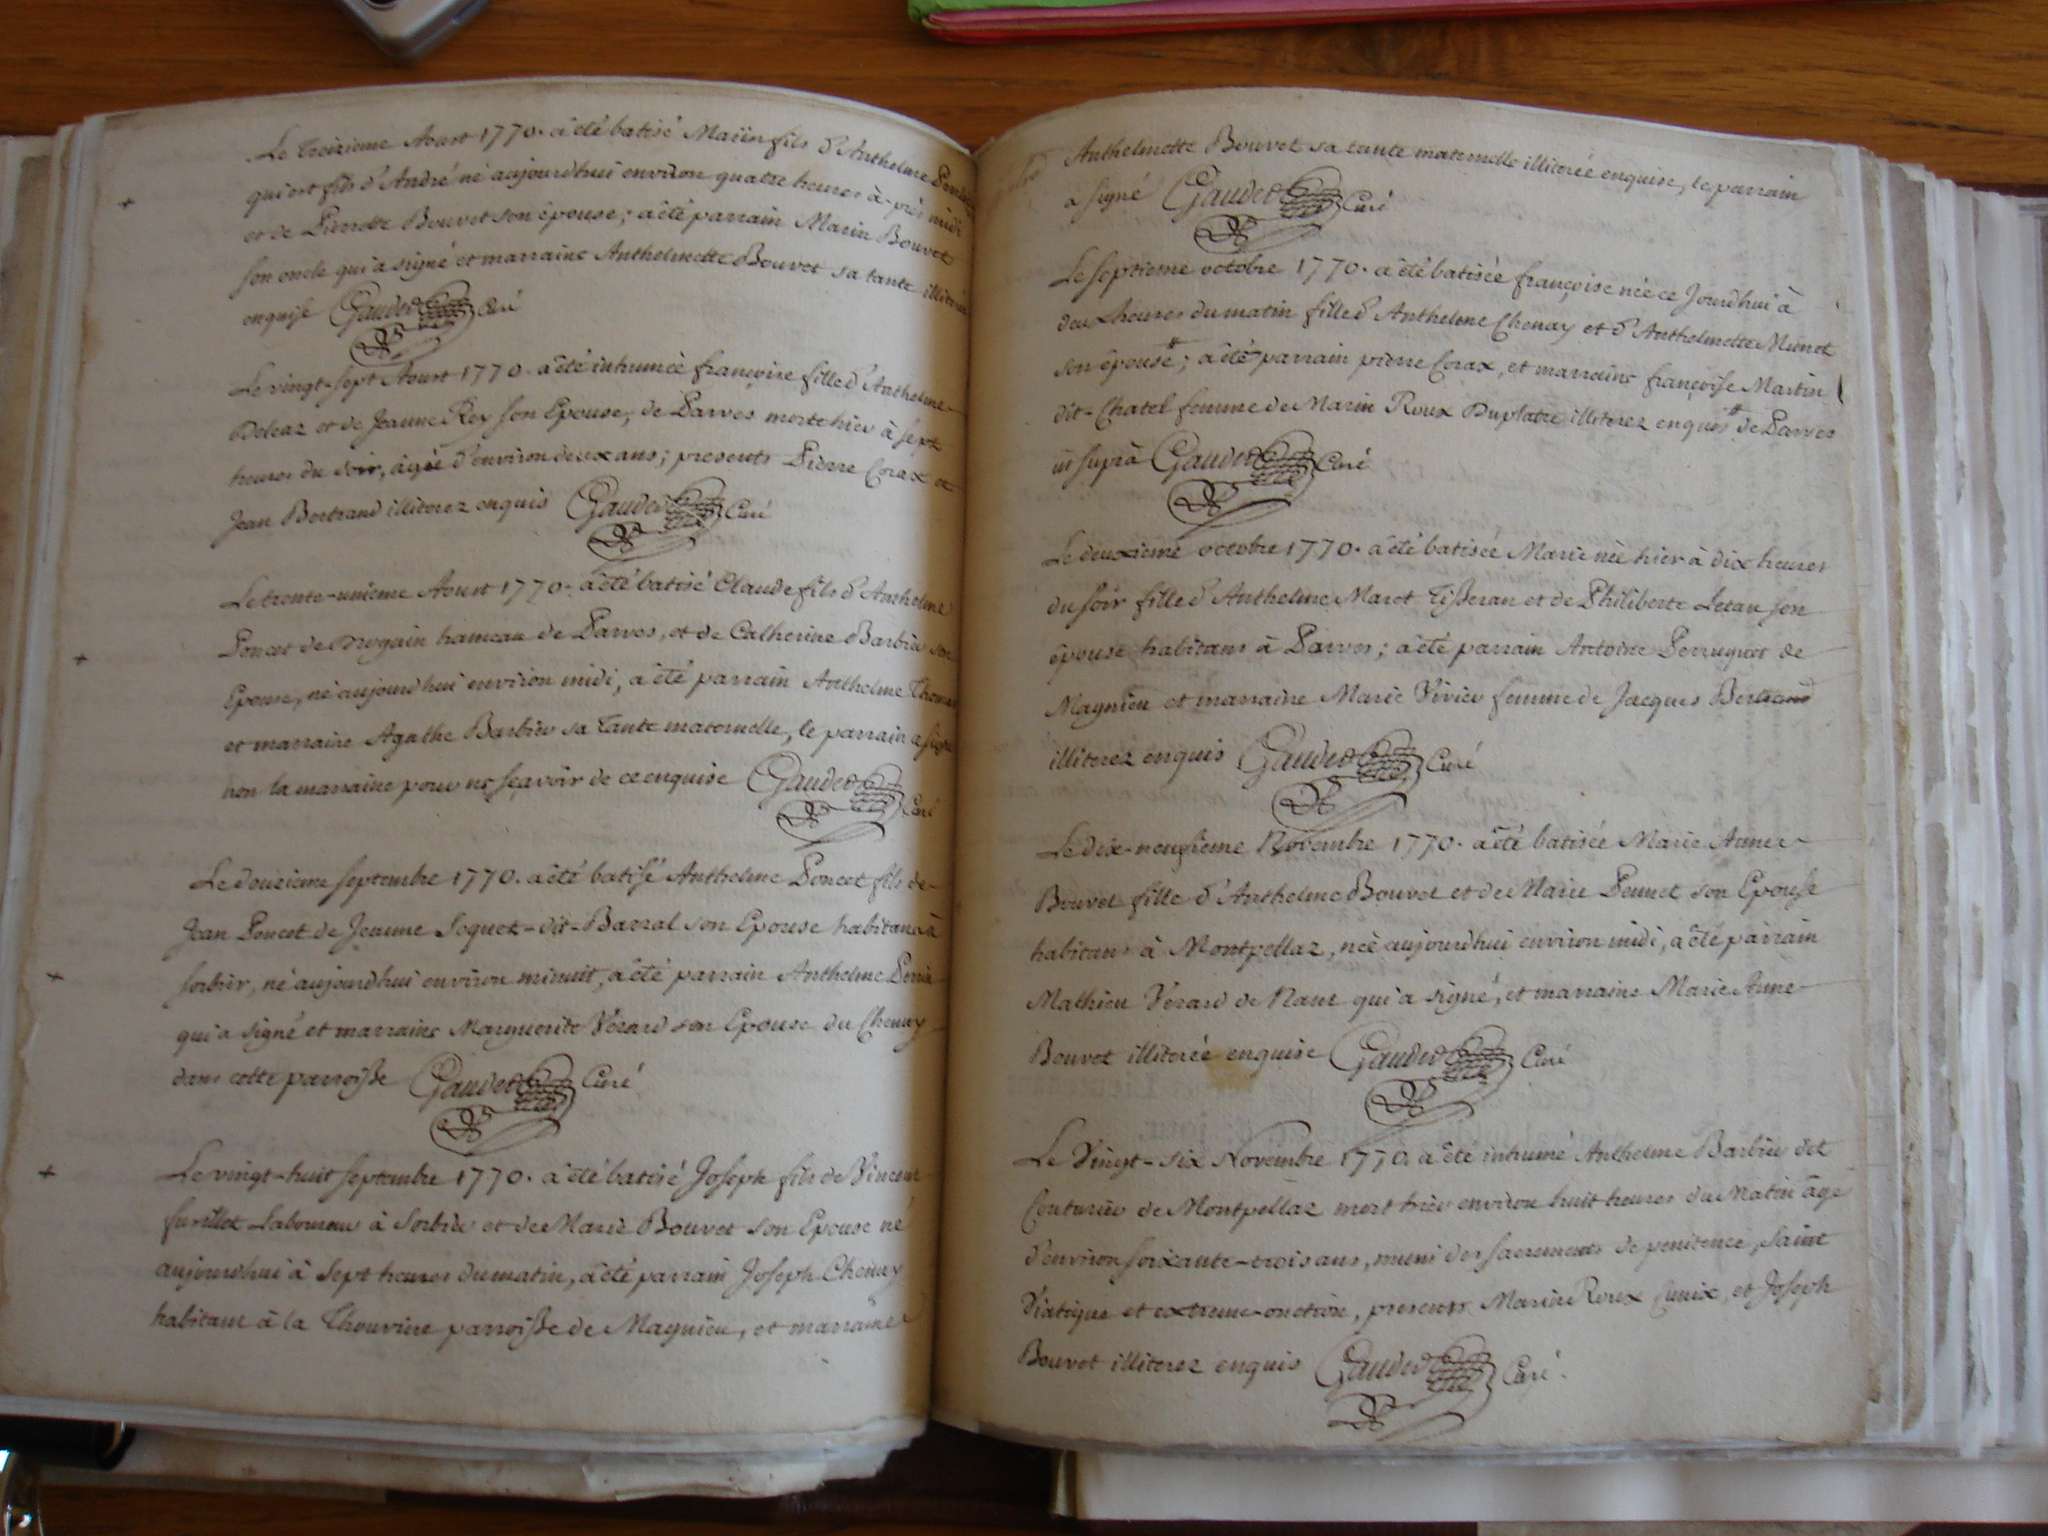 Le treizieme Aoust 1770. a été batisé Marin fils d'Anthelme
qui est fils d'André né aujourdhui environ quatre heures à-près midi
et de Pierrotte Bouvet son épouse; a été parrain Marin Bouvet
son oncle qui a signé et marraine Anthelmette Bouvet sa tante illiterée
enquise Gaudet Curé
Le vingt-sept Aoust 1770. a été inhumée françoise fille d'Anthelme
Deleaz et de Jeanne Rey son Epouse, de Parves morte hier à sept
heures du soir, âgée d'environ deux ans; presents Pierre Corax et
Jean Bertrand illiterez enquis Gaudet Curé
Le trente-unieme Aoust 1770. a été batisé Claude fils d'Anthelme
Poncet de Sorgain hameau de Parves, et de Catherine Barbier son
Epouse, né aujourdhui environ midi, a été parrain Anthelme
et marraine Agathe Barbier sa Tante maternelle, le parrain a signé
non la marraine pour ne sçavoir de ce enquise Gaudet
Curé
Le douzieme septembre 1770. a été batisé Anthelme Poncet fils de
Jean Poncet de Jeanne Soquet-dit-Barral son Epouse habitans à
sorbier, né aujourdhui environ minuit, a été parrain Anthelme
qui a signé et marraine Marguerite Verard son Epouse du Chenay
dans cette parroisse Gaudet Curé
Le vingt-huit septembre 1770. a été batisé Joseph fils de Vincent
furillet Laboureur à Sorbier et de Marie Bouvet son Epouse né
aujourdhui à sept heures du matin, a été parrain Joseph Chenay
habitant à la Thouvine parroisse de Magnieu, et marraine
Anthelmette Bouvet sa tante maternelle illiterée enquise, le parrain
a signé Gaudet Curé
Le septieme octobre 1770. a été batisée françoise née ce Jourdhui à
deux heures du matin fille d'Anthelme Chenay et d'Anthelmette Munet
son épouse; a été parrain pierre Corax, et marraine françoise Martin
dit-Chatel femme de Marin Roux Duplatre illiterez enquis de Parves
ut suprà Gaudet Curé
Le deuxieme octobre 1770. a été batisée Marie née hier à dix heures
du soir fille d'Anthelme Maret Tisseran et de Philiberte Letan son
épouse habitans à Parves; a été parrain Antoine Perruquet de
Magnieu et marraine Marie Vivier femme de Jacques Bertrand
illiterez enquis Gaudet Curé
Le dix-neuvieme Novembre 1770. a été batisée Marie Anne
Bouvet fille d'Anthelme Bouvet et de Marie Peunet son Epouse
habitans à Montpellaz, née aujourdhui environ midi, a été parrain
Mathieu Verard de Nant qui a signé, et marraine Marie Anne
Bouvet illiterée enquise Gaudet Curé
Le Vingt-six Novembre 1770. a été inhumé Anthelme Barbier dit
Couturier de Montpellaz mort hier environ huit heures du Matin âgé
d'environ soixante-trois ans, muni des sacrements de penitence, saint
Viatique et extreme-onction, presents Marin Roux Cunix, et Joseph
Bouvet illiterez enquis Gaudet Curé.